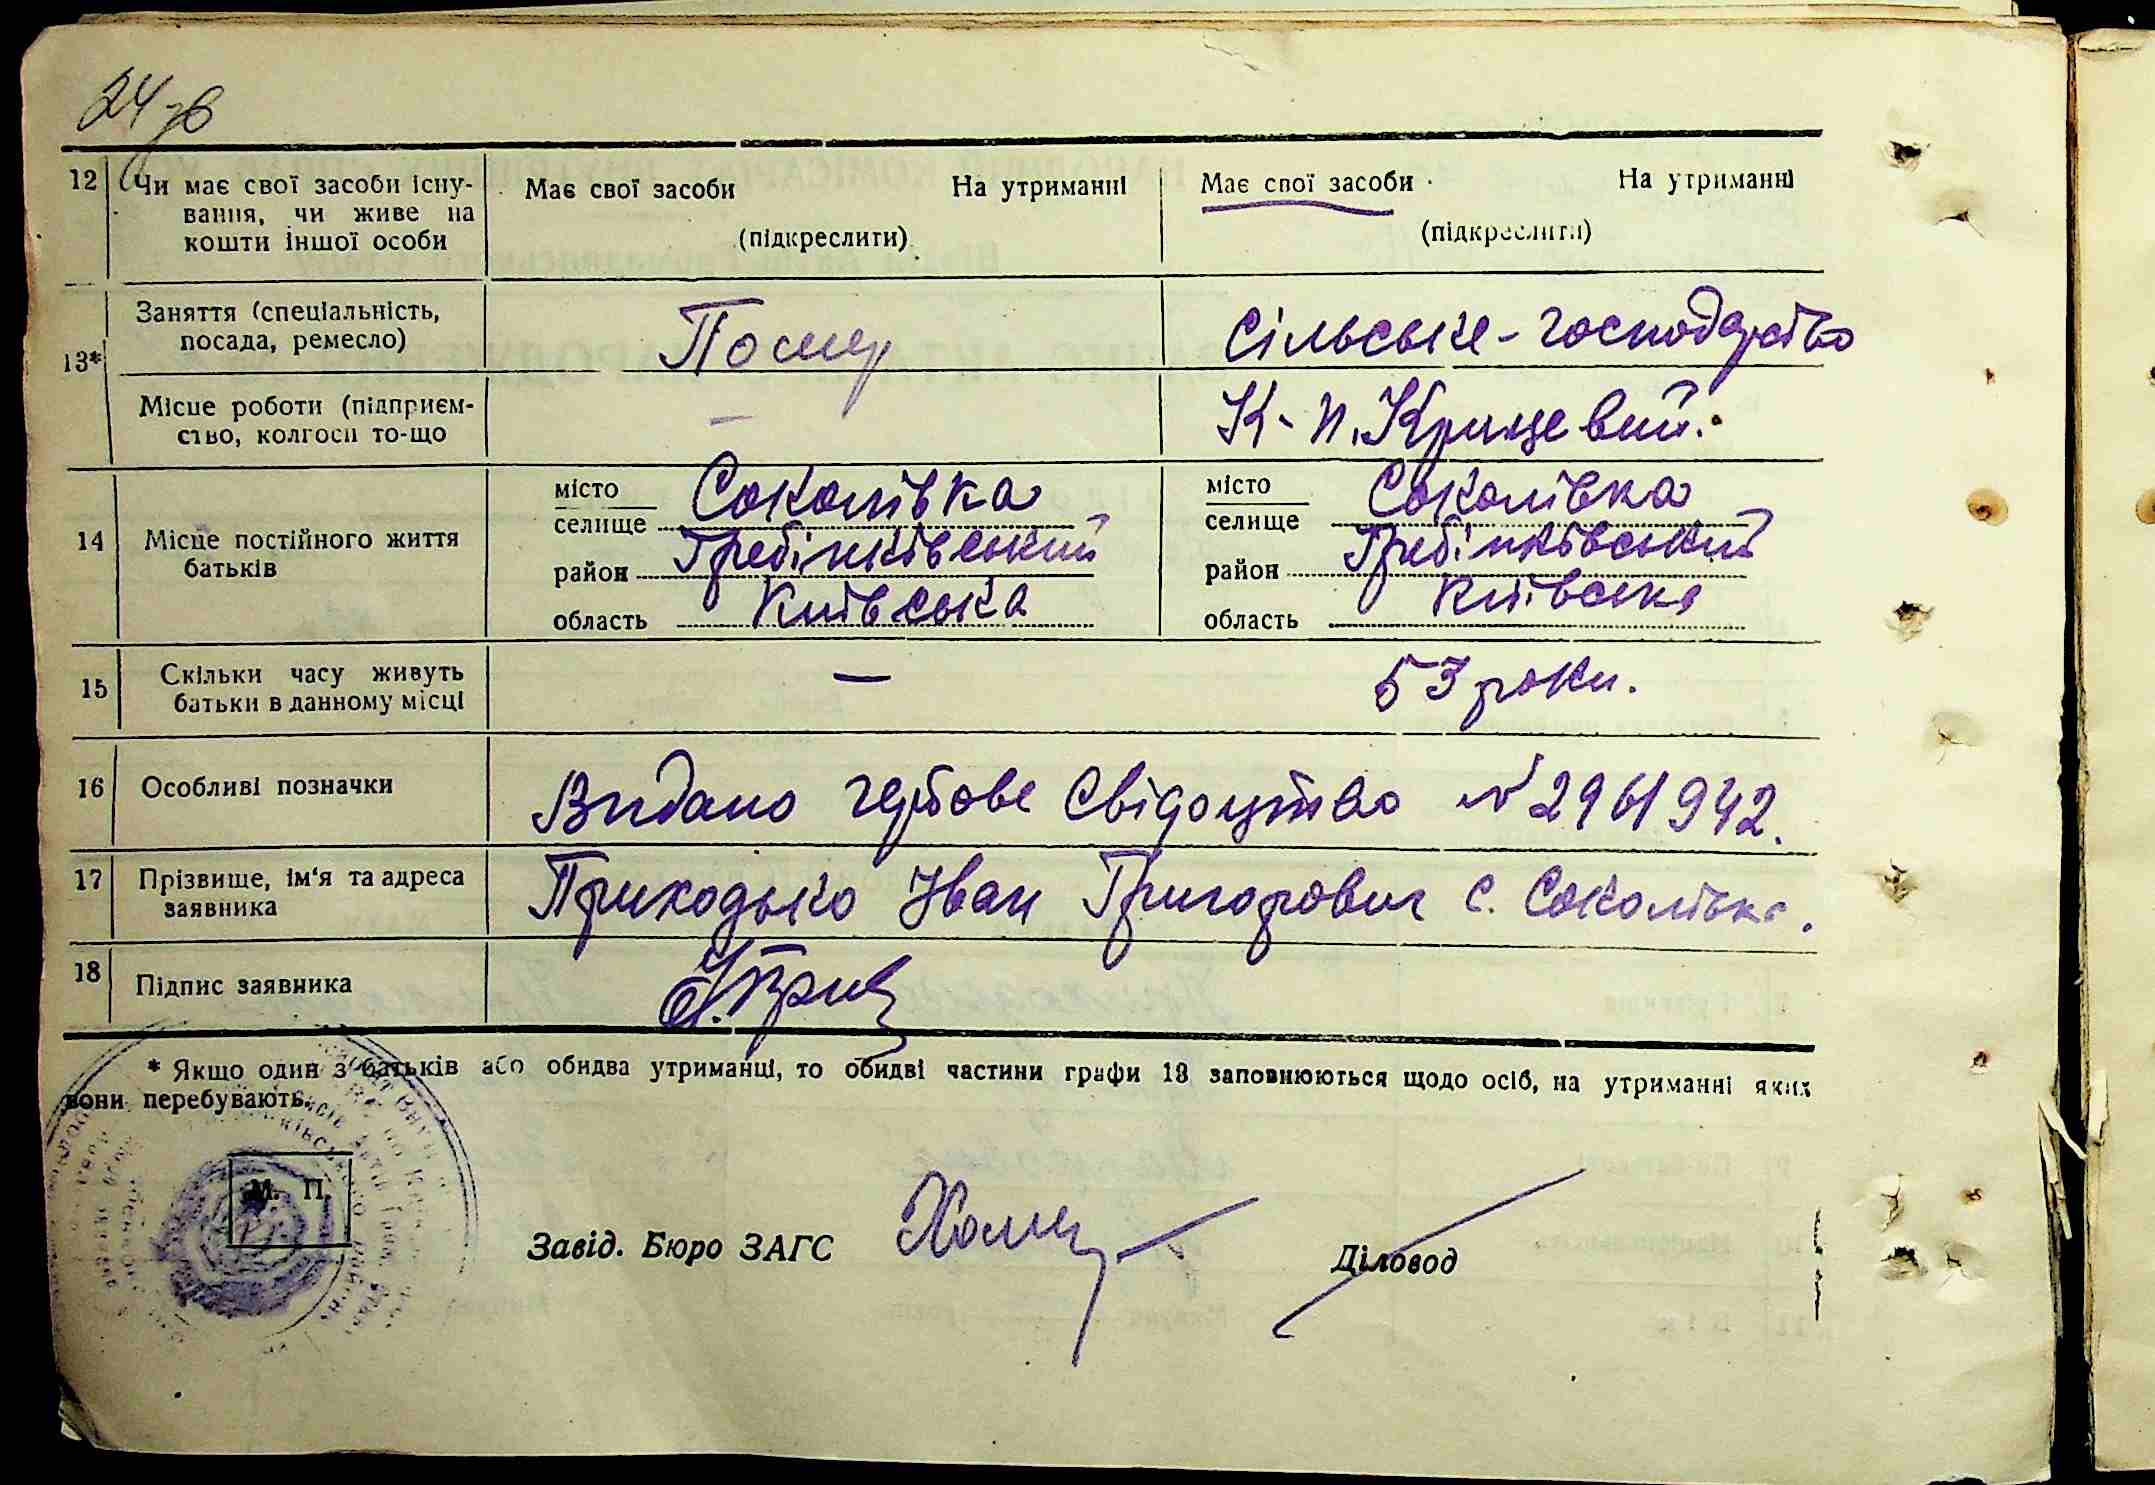 24 зв
12 Чи має свої засоби існу-
вання, чи живе на
кошти іншої особи
Має свої засоби На утриманні
(підкреслити)
Має свої засоби На утриманні
(підкреслити)
13*
Заняття (спеціальність,
посада, ремесло)
Помер
Сільське-господарство
Місце роботи (підприєм-
ство, колгосп то-що
—
К-п. Крищевий.
14 Місце постійного життя
батьків
місто
селище Соколівка
район Гребінківський
область Київська
місто
селище Соколівка
район Гребінківський
область Київська
15 Скільки часу живуть
батьки в данному місці
—
53 роки.
16 Особливі позначки
Видано гербове Свідоцтво № 2961942.
17 Прізвище, ім'я та адреса
заявника
Приходько Іван Григорович с. Соколівка.
18 Підпис заявника
* Якщо один з батьків або обидва утриманці, то обидві частини графи 13 заповнюються щодо осіб, на утриманні яких
вони перебувають.
М. П.
Завід. Бюро ЗАГС
Діловод